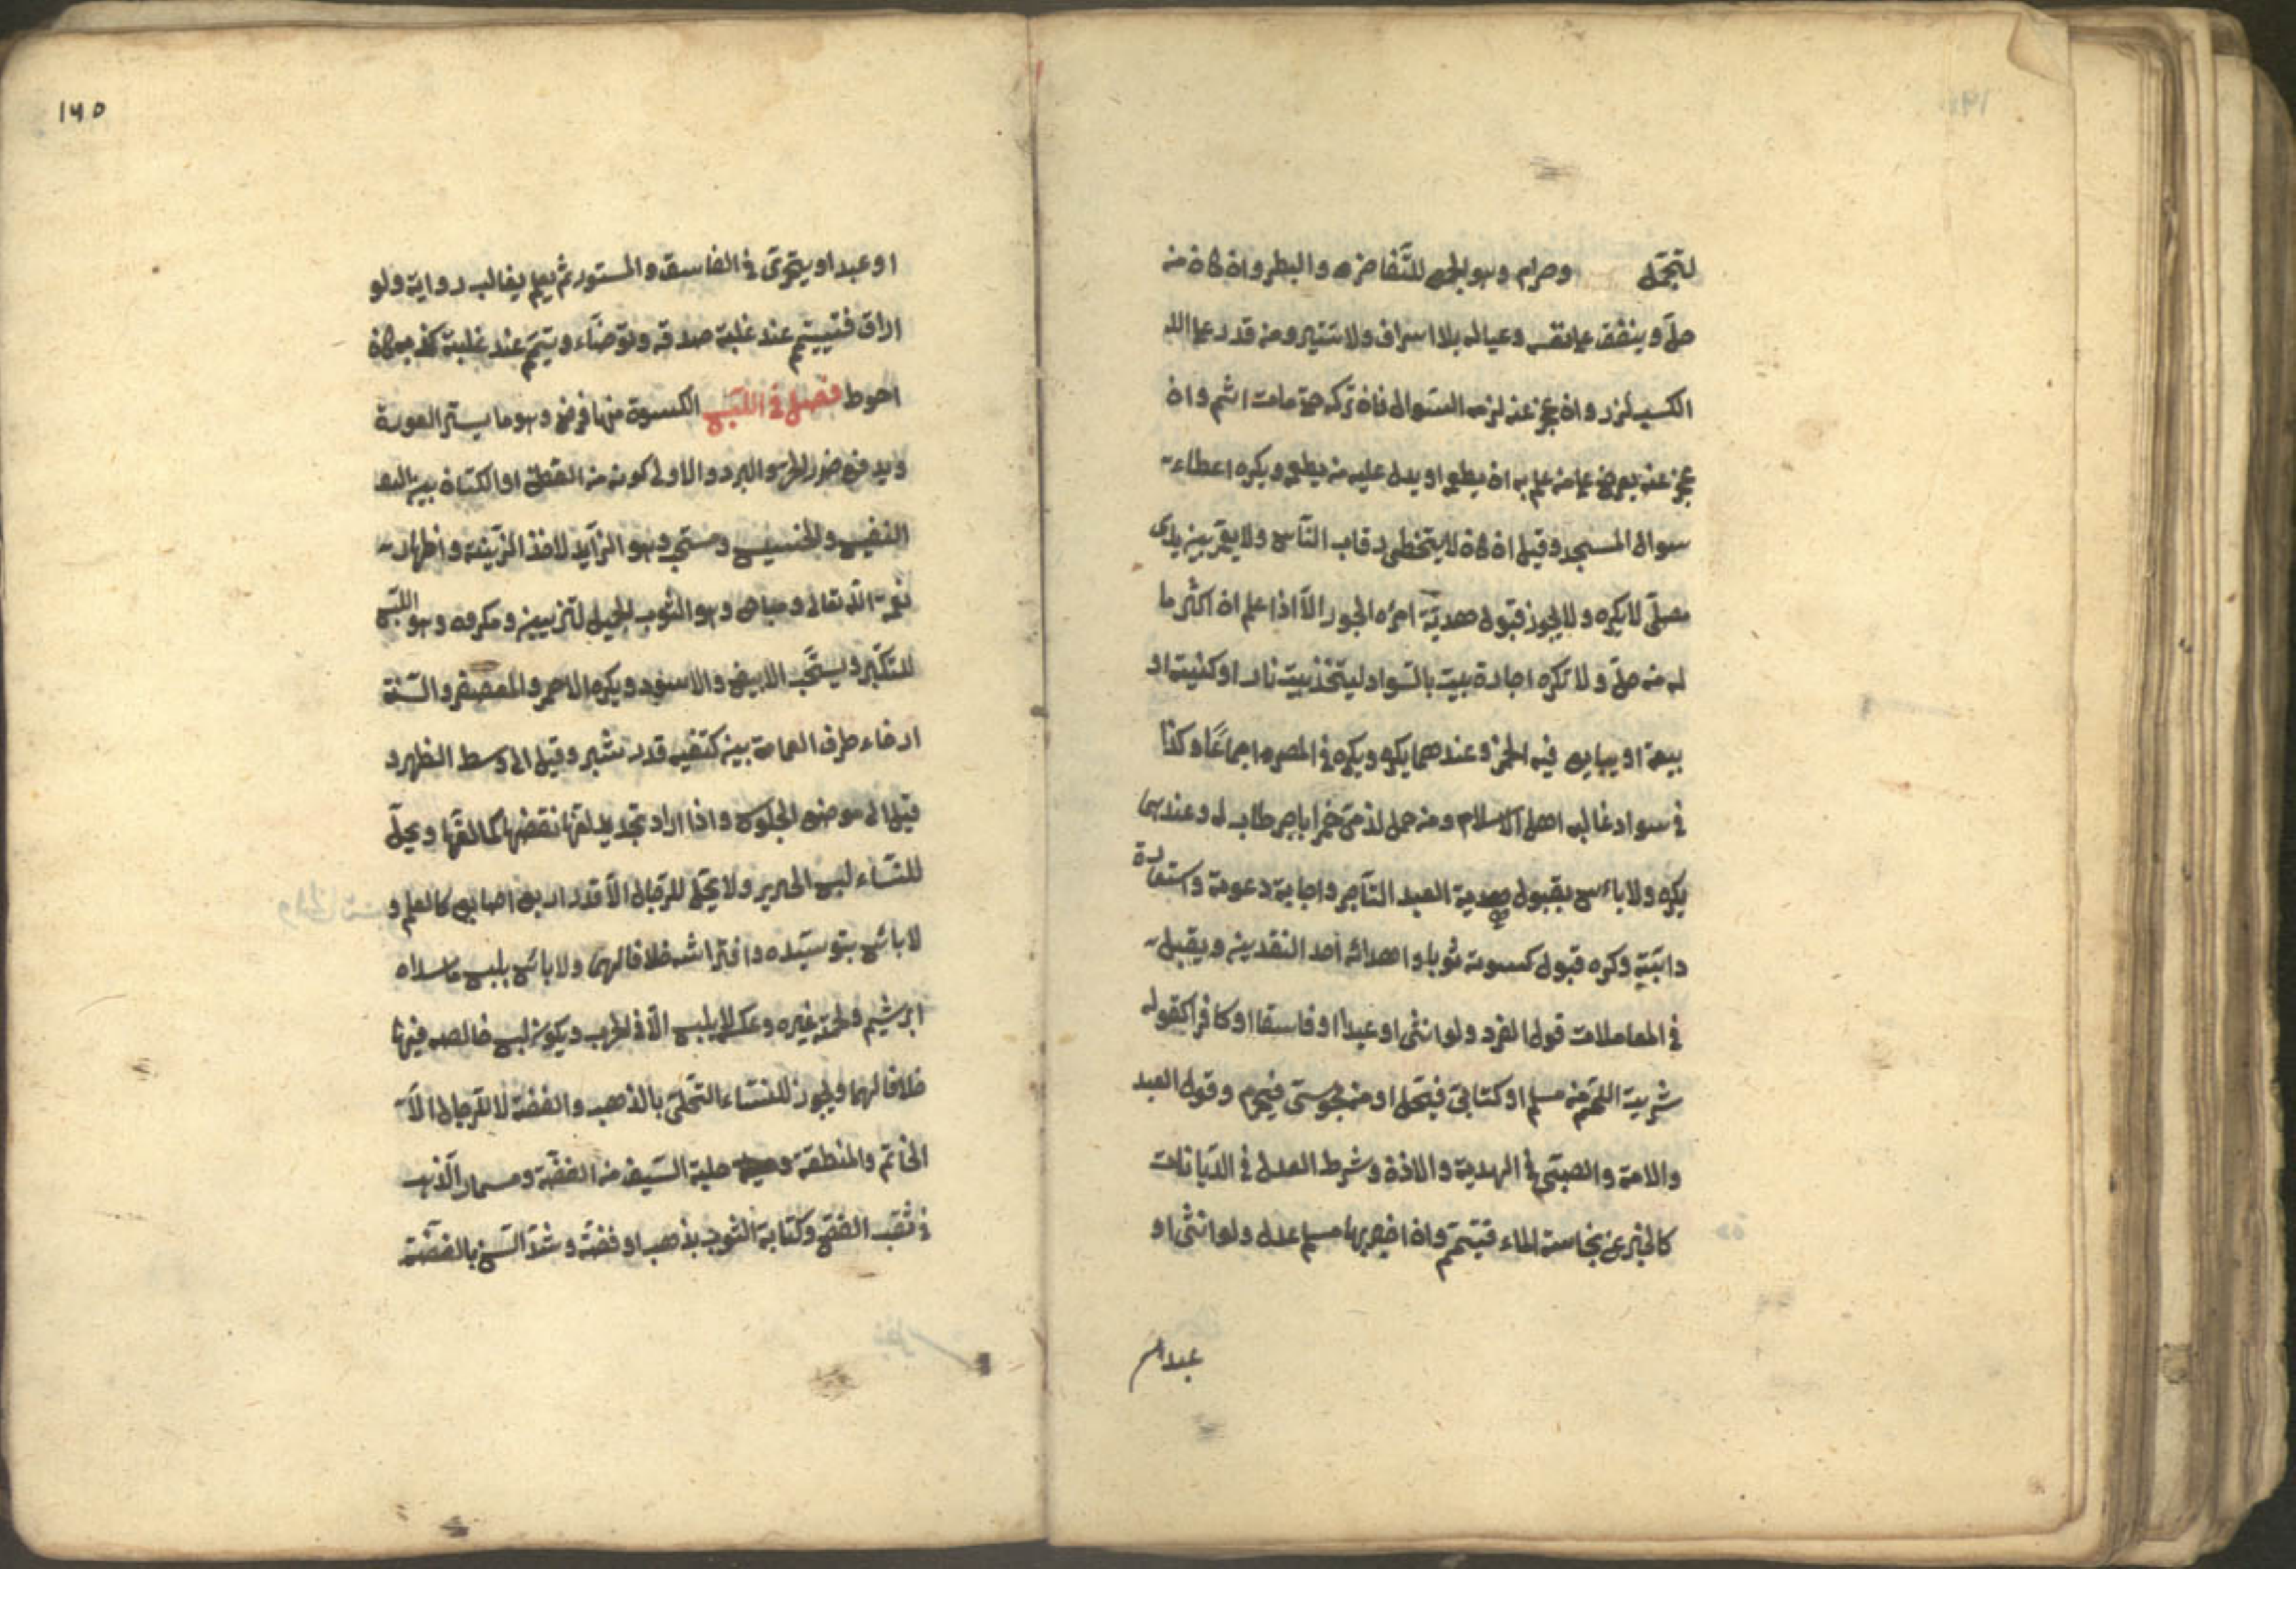 لتجمّل وحرام وهو الجمع للتّفاخر والبطر وان كان من
حلّ وينفق على نفسه وعياله بلا اسراف ولا تقتير ومن قدر على
الكسب لزمه وان عجز عنه لزمه السّوال فان تركه حتى مات اثم وان
عجز عنه يعرض على من علم به ان يطعمه او يدل عليه من يطعمه ويكره اعطاء
سوال المسجد وقيل ان كان لا يتخطى رقاب النّاس ولا يمر بين يدى
مصلّى لا يكره ولا يجوز قبول هديّة امراء الجور الّا اذا علم ان اكثر ما
له من حلّ ولا تكره اجارة بيت بالسّواد ليتخذ بيت نار او كنيسة او
بيعة او يباع فيه الخمر وعندهما يكره ويكره فى المصر اجماعًا وكذا
فى سواد غالبه اهل الاسلام ومن حمل لذمّى خمرا باجر طاب له وعندهما
يكره ولا بأس بقبول هدية العبد التّاجر واجابة دعوته واستعارة
دابّته وكره قبول كسوته ثوبا واهدائه احد النقدين ويقبل
فى المعاملات قول الفرد ولو انثى او عبدا او فاسقا او كافرا كقوله
شريت اللّحم من مسلم او كتابى فيحل او من مجوسى فيحرم وقول العبد
والامة والصبّى فى الهدية والاذن وشرط العدل فى الدّيانات
كالخبر عن نجاسة الماء فيتيمّم وان اخبر بها مسلم عدل ولو انثى او
عبدا
١٦٥
او عبدا ويتحرّى فى الفاسق والمستور ثم يعمل بغالب رواية ولو
اراق فتيمم عند غلبة صدقه وتوضّاء وتيمّم عند غلبة كذبه كان
احوط فصل فى اللّبس الكسوة منها فرض وهو ما يستر العورة
ويدفع ضرر الحر والبرد والاولى كونه من القطن او الكتان بين
النفيس والخسيس ومستحب وهو الزّايد لاخذ الزّينة واظهار
نعمة اللّه تعالى ومباح وهو الثوب الجميل لتزيين ومكروه وهو اللّبس
للتكبّر ويستحّب الابيض والاسود ويكره الاحمر والمعصفر والسّنة
ارخاء طرف العمامة بين كتفيه قدر شبر وقيل الى وسط الظهر و
قيل الى موضع الجلوس واذا اراد تجديد لفّها نقضها كما لفّها ويحلّ
للنّساء لبس الحرير ولا يحّل للرّجال الّا قدر اربع اصابع كالعلم و
لا باس بتوسّده وافتراشه خلافا لهما ولا باس بلبس ما سداه
ابريشم ولحمته غيره وعكسه لا يلبس الّا فى الحرب ويكره لبس خالصه فيها
خلافا لهما ويجوز للنّساء التّحلّى بالذهب والفضة لا للرّجال الّا
الخاتم والمنطقة وحلية السّيف من الفضّة ومسمار الذّهب
فى ثقب الفصّ وكتابة الثوب بذهب او فضّة وشدّ السّن بالفضّة